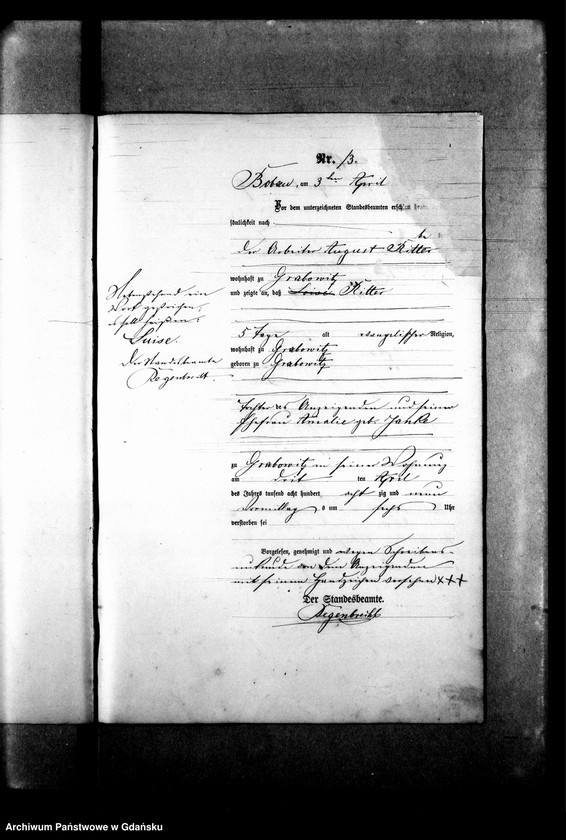 Nr. 13.
Bobau, am 3ten April
Vor dem unterzeichneten Standesbeamten erschien
sönlichkeit nach
der Arbeiter August Ritter
wohnhaft zu Grabowitz
und zeigte an, daß Loise Ritter
5 Tage alt evangelischer Religion,
wohnhaft zu Grabowitz
geboren zu Grabowitz
Tochter des Anzeigenden und seiner
Ehefrau Amalie geb. Janke
zu Grabowitz in seiner Wohnung
am ten April
des Jahres tausend acht hundert acht zig und neun
Vormittag s um sechs Uhr
verstorben sei
Vorgelesen, genehmigt und wegen Schreibens-
unkunde von dem Anzeigenden
mit seinem Handzeichen versehen +++
Der Standesbeamte.
Regenbrecht
Nebenstehend ein
Wort gestrichen,
es soll heißen:
Luise.
Der Standesbeamte
Regenbrecht.
Archiwum Państwowe w Gdańsku